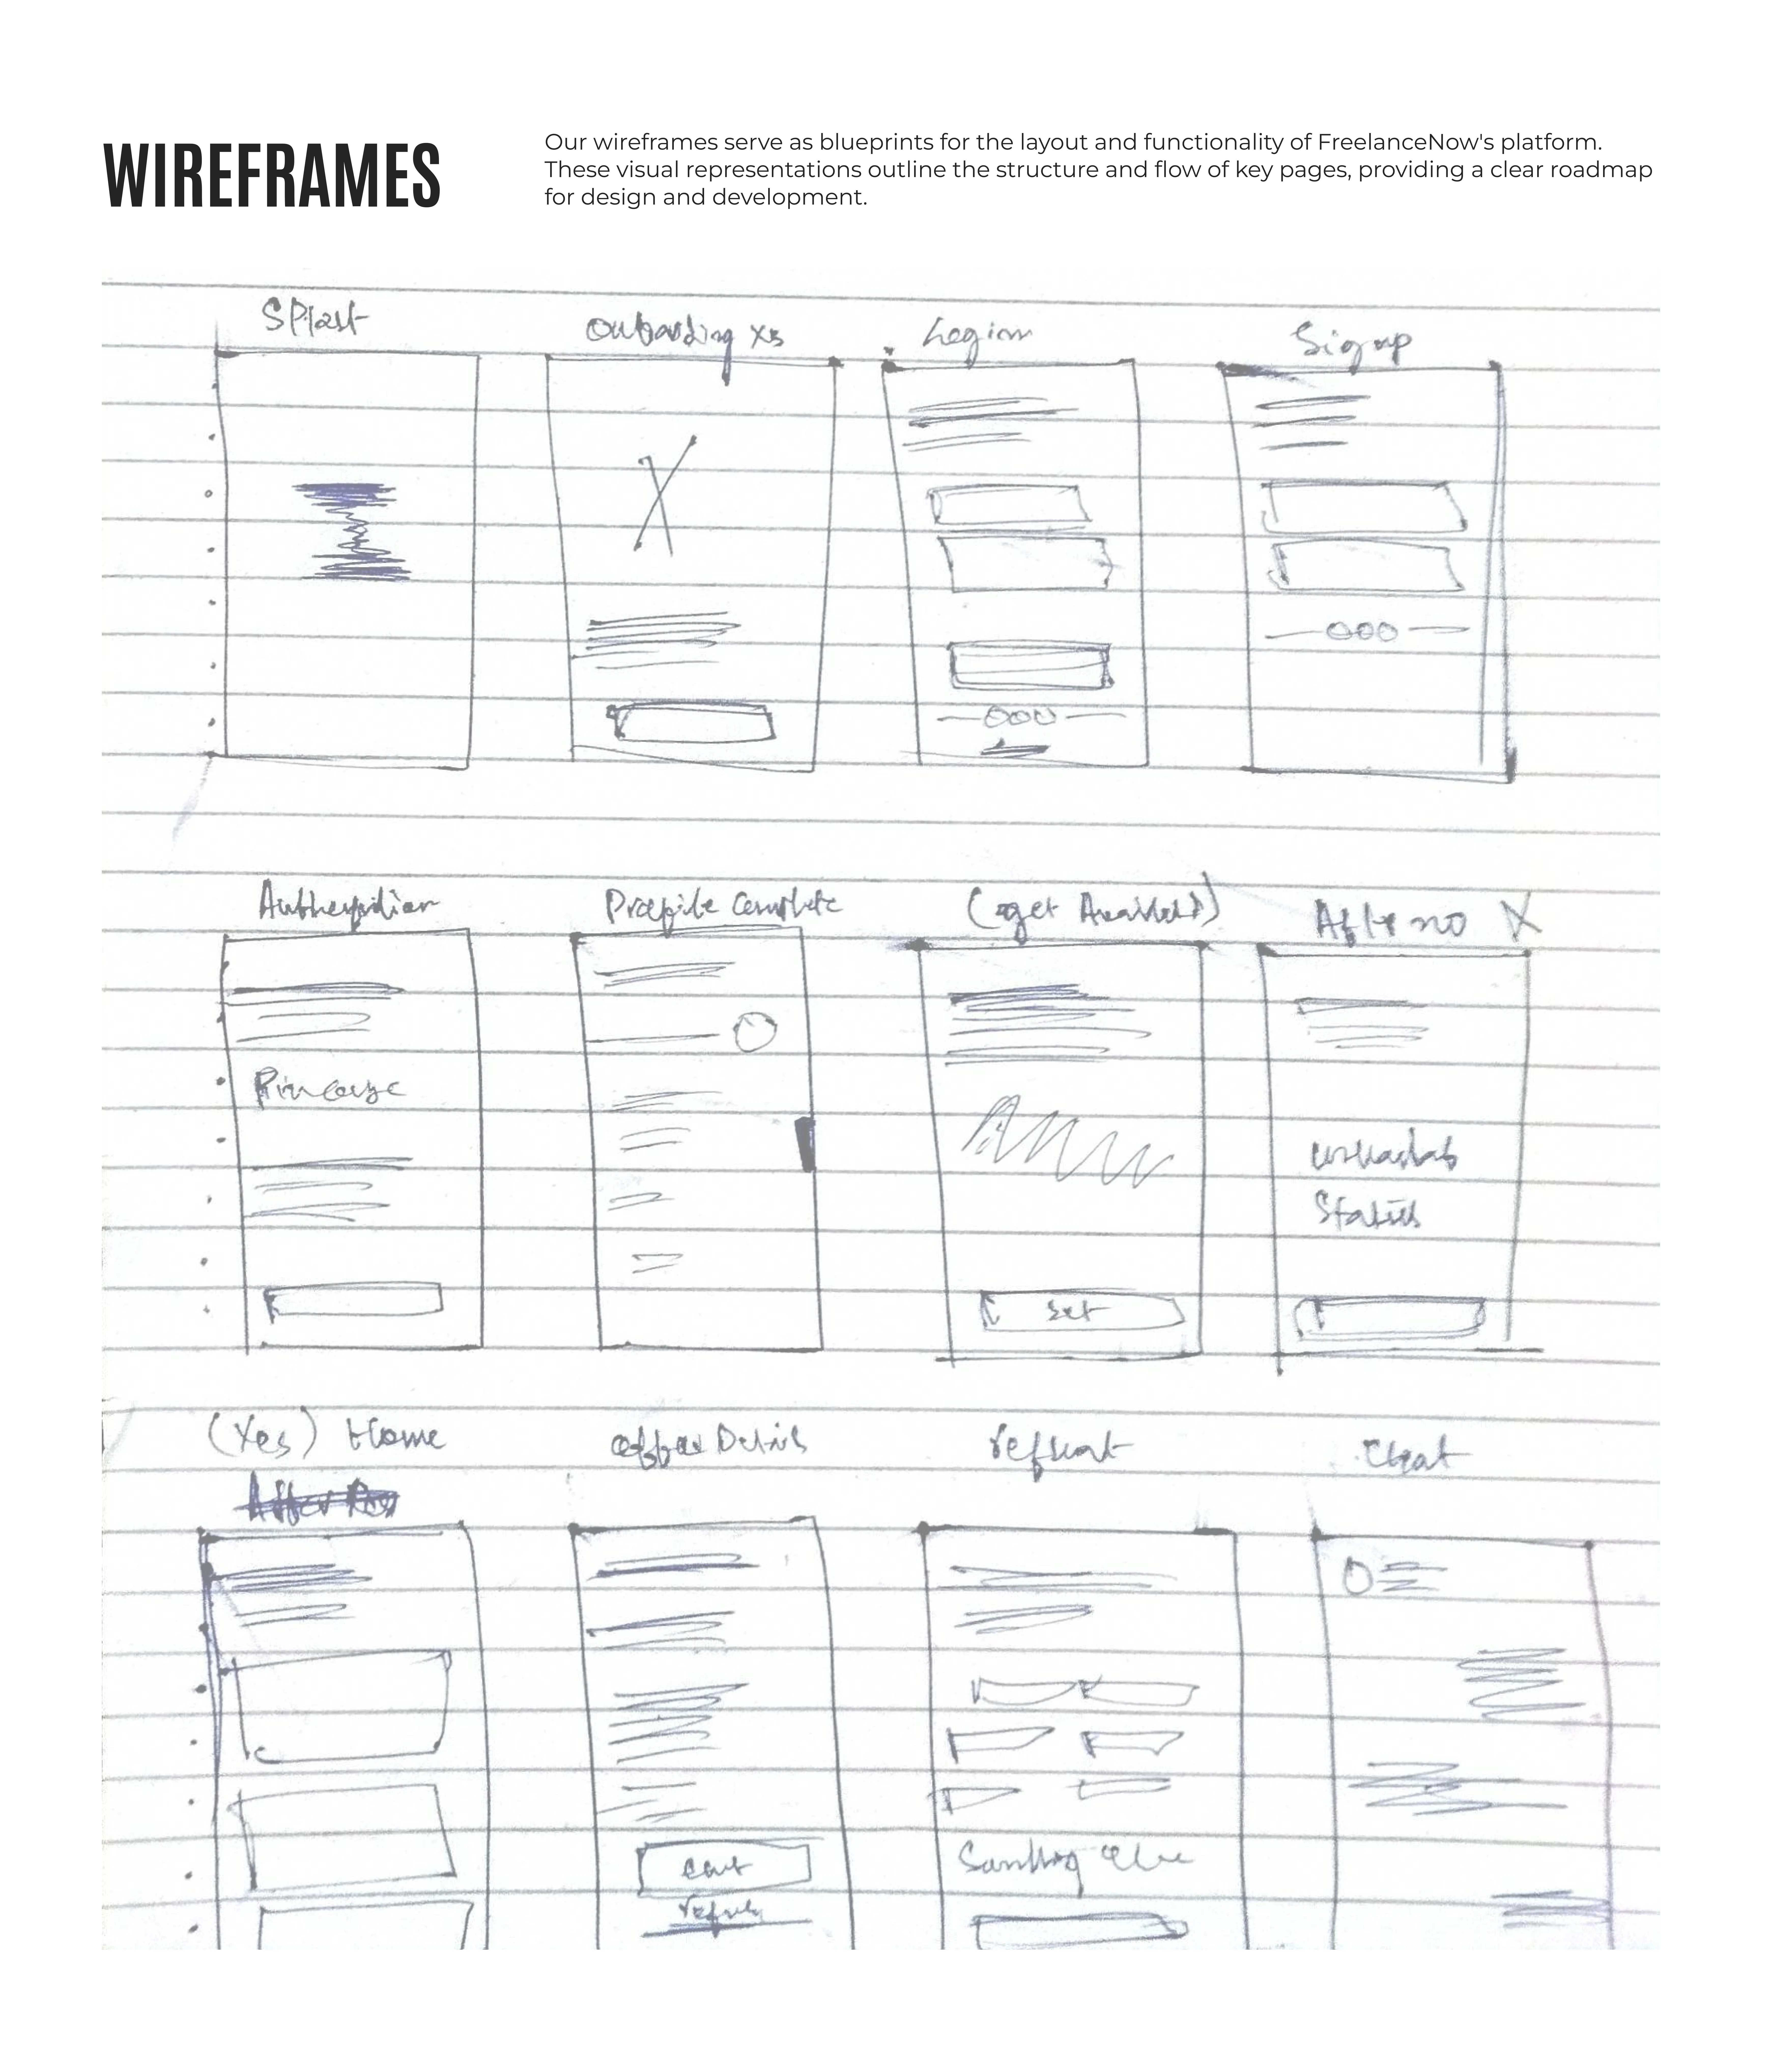 WIREFRAMES
Our wireframes serve as blueprints for the layout and functionality of FreelanceNow's platform.
These visual representations outline the structure and flow of key pages, providing a clear roadmap
for design and development.
SPlash
Onboarding x3
Login
Sign up
Profile Complete
(get Availab)
After no X
Pincode
Status
Set
(Yes) Home
offer Details
refusat
Chat
Something else